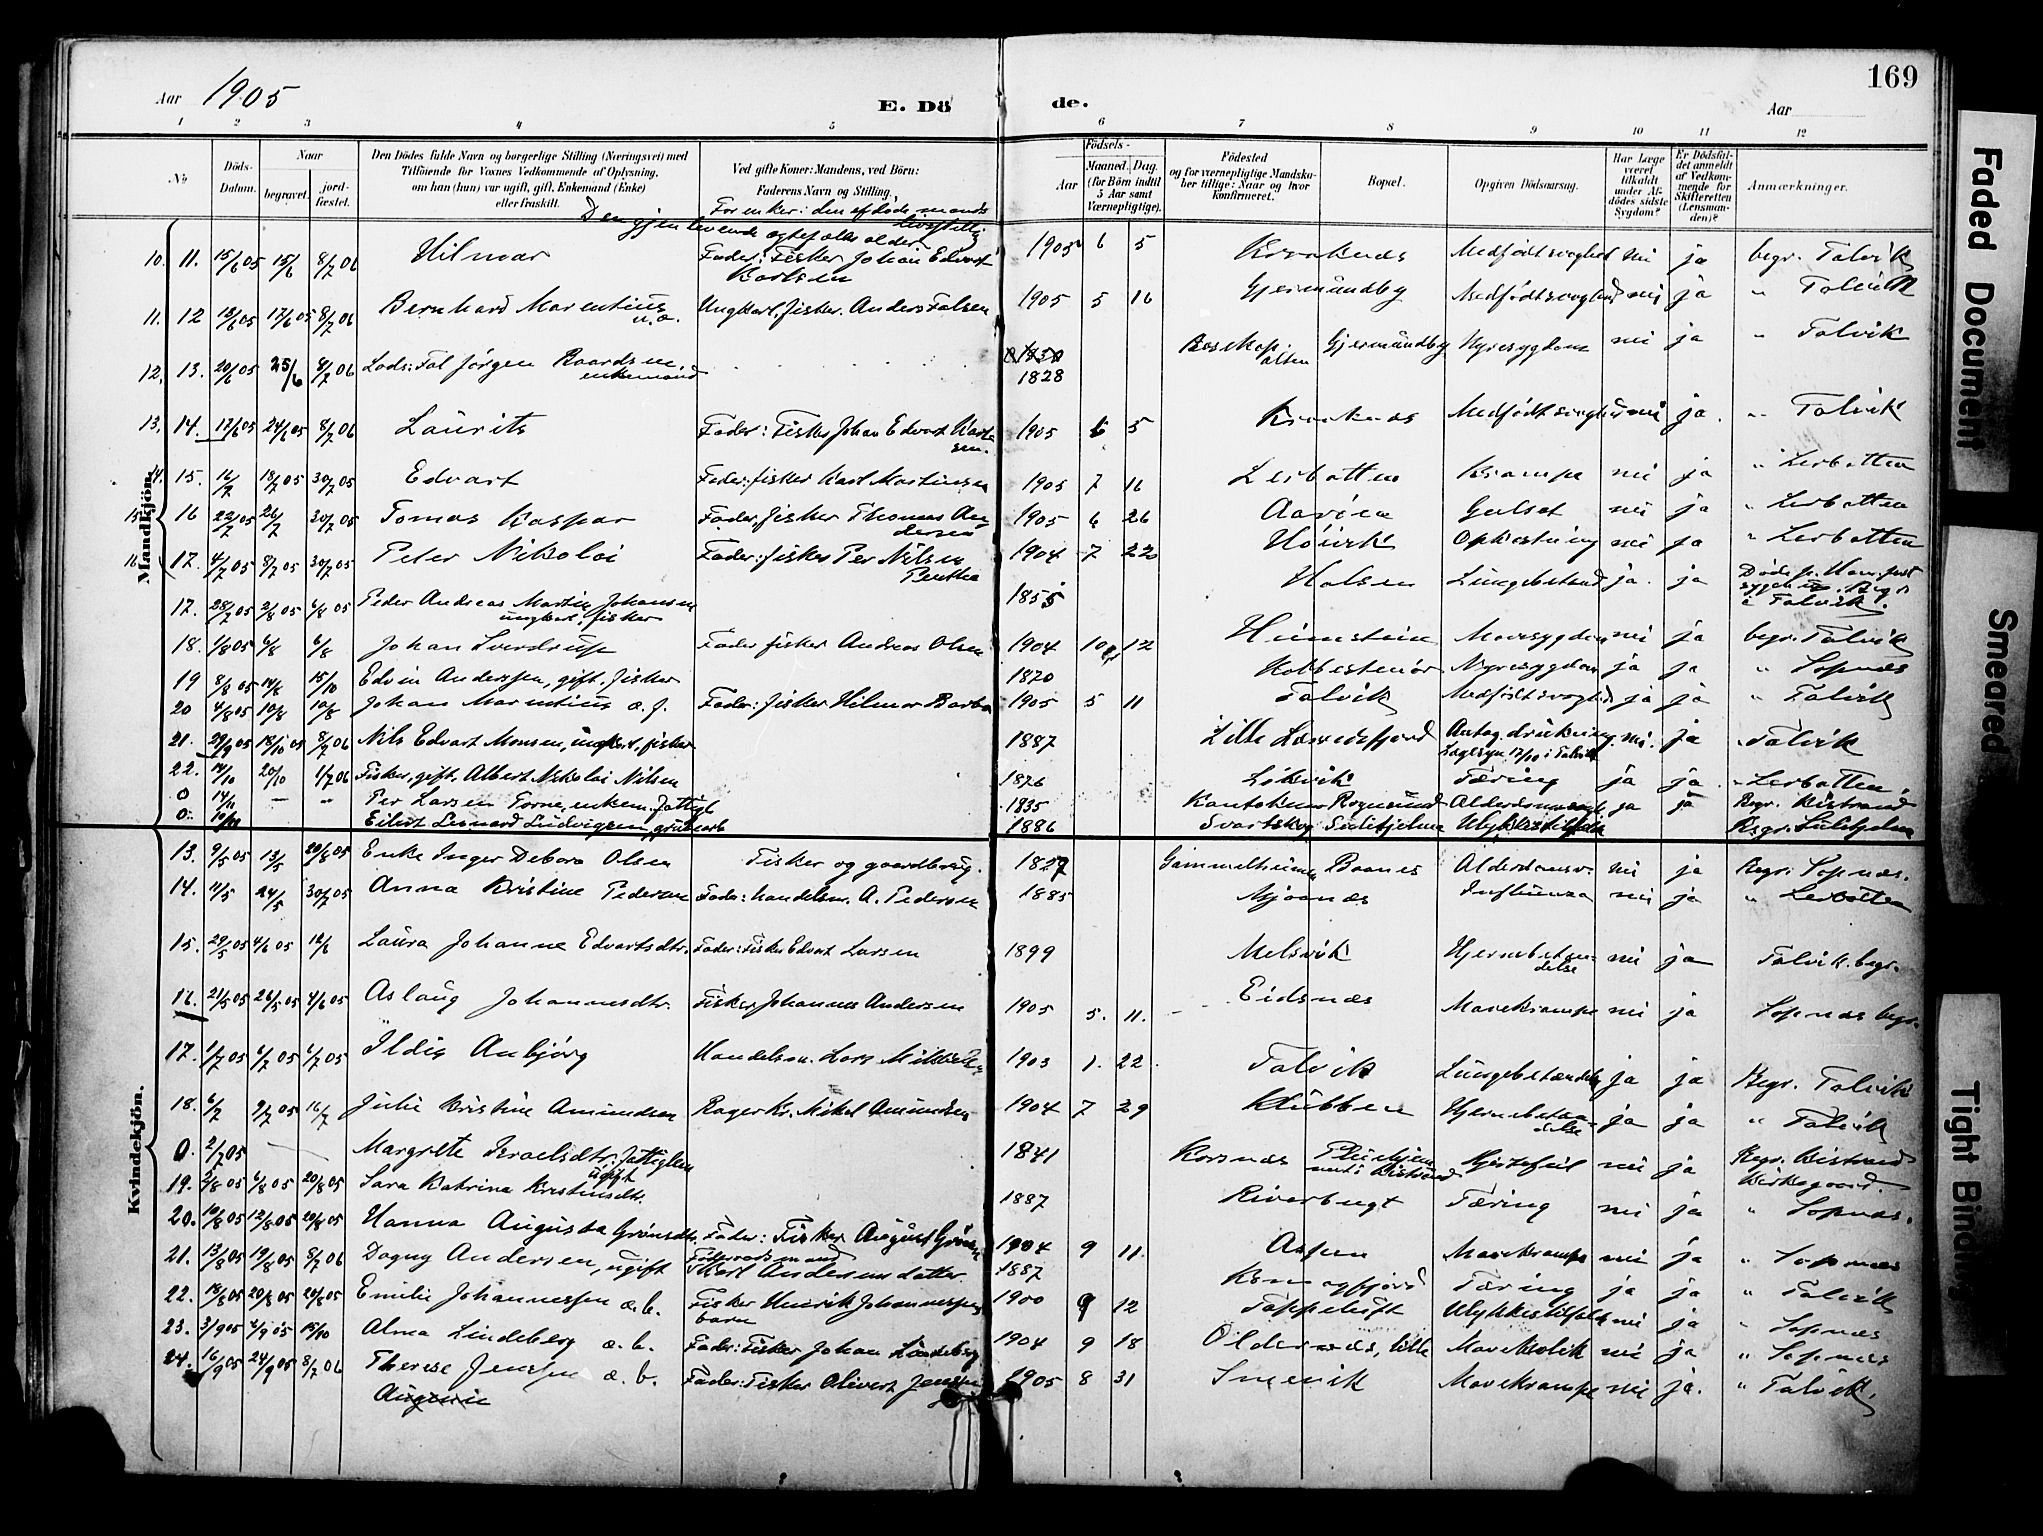 169
Aar 1905
E. Dö de.
Aar
1 2 3 4 5 6 7 8 9 10 11 12
No
Döds-Datum.
Naar
begravet.
jord-fæstet.
Den Dödes fulde Navn og borgerlige Stilling (Næringsvei) med Tilföiende for Voxnes Vedkommende af Oplysning, om han (hun) var ugift, gift, Enkemand (Enke) eller fraskilt.
Ved gifte Koner: Mandens, ved Börn: Faderens Navn og Stilling.
For enker: den afdøde mands livsstilling
Den gjenlevende ægtefælles alder
Födsels-
Aar
Maaned. Dag.
(for Börn indtil 5 Aar samt Værnepligtige).
Födested og for værnepligtige Mandska-ber tillige: Naar og hvor konfirmeret.
Bopæl.
Opgiven Dödsaarsag.
Har Læge været tilkaldt under Af-dödes sidste Sygdom?
Er Dödsfal-det anmeldt af Vedkom-mende for Skifteretten (Lensman-den)?
Anmærkninger.
Mandkjön.
10. 11. 15/6 05 15/6 8/7 06 Hilmar Fader: Fisker Johan Edvart Karlsen 1905 6 5 Kraknæs Medfødt svaghed nei ja begr. Talvik
11. 12 13/6 05 17/6 05 8/7 06 Bernhard Marentius u.æ. Ungkarl, fisker Anders Falsen 1905 5 16 Gjermundby Medfødt svaghed nei ja " Talvik
12. 13. 20/6 05 25/6 8/7 06 Lods: Fal Jørgen Baardsen enkemand 1828 Bossekop Alten Gjermundby Nyresygdom nei ja " Talvik
13. 14. 17/6 05 24/6 05 8/7 06 Laurits Fader: Fisker Johan Edvart Karlsen. 1905 6 5 Kraknæs Medfødt svaghed nei ja. " Talvik
14. 15. 16/7 18/7 05 30/7 05 Edvart Fader: fisker Karl Martinsen 1905 7 16 Lerbotten Krampe nei ja " Lerbotten
15 16 22/7 05 26/7 30/7 05 Tomas Kaspar Fader, fisker Thomas Andersen 1905 6 26 Aarøen Gulsot nei ja " Lerbotten
16 17. 4/7 05 8/7 05 30/7 05 Peter Nikolai Fader: fisker Per Nilsen 1904 7 22 Høivik Opkastning nei ja " Lerbotten
17. 28/7 05 2/8 05 6/8 05 Peder Andreas Martin Johansen ungkarl, fisker 1855 Halsen Lungebetænd ja. ja Talvik.
18. 1/8 05 6/8 6/8 Johan Sverdrup Fader fisker Andreas Olsen 1904 10 12 Mavesygdom nei ja begr. Talvik
19 8/8 05 14/8 15/10 Edvin Anderssen, gift, fisker 1870 Nyresygdom ja ja " Sopnæs
20 4/8 05 10/8 10/8 Johan Marentius æ.f. Fader: fisker Hilmar 1905 5 11 Talvik Medfødt svaghed ja ja " Talvik
21. 29/9 05 18/10 05 8/7 06 Nils Edvart Monsen, ungkarl, fisker 1887 Lille Lærredsfjord Antag. drukning. nei. ja Talvik
Lægesyn 17/10 i Talvik
22. 14/10 20/10 1/7 06 Fisker, gift, Albert Nikolai Nilsen 1876 Løkvik Tæring ja ja. Lerbotten.
0 14/11 — " Per Larsen Torne, enkem. fattigl 1835 Kautokeino Alderdomssvagh ja ja Begr. Kistrand
0. Eilert Leonard Ludvigsen grubearb 1886 Svartskog Sulitjelma Ulykkestilfælde Begr. Sulitjelma
Kvindekjön.
13. 9/5 05 13/5 20/8 05 Enke Inger Debora Olsen Fisker og gaardbrug. 1827 Gammelheimen Baanes Alderdomssv. nei ja Begr. Sopnæs.
14. 11/5 24/5 30/7 05 Anna Kristine Pedersen Fader: handelsm. A. Pedersen 1885 Mjaanæs Influenza nei ja " Lerbotten
15. 29/5 05 4/6 05 12/6 Laura Johanne Edvartsdtr. Fader: Fisker Edvart Larsen 1899 Melsvik Hjernebetændelse nei ja Talvik. begr.
16. 21/5 05 26/5 05 4/6 05 Aslaug Johannesdtr. Fisker Johannes Andersen 1905 5. 11. Eidsnæs Mavekrampe nei ja Sopnæs begr.
17. 1/7 05 6/7 05 6/7 05 Ildis Anbjørg Handelsm. Lars Mikkelsen 1903 1. 22. Talvik Lungebetændelse ja ja Begr. Talvik
18. 6/7 9/7 05 16/7 Julie Kristine Amundsen Mikal Amundsen 1904 7 29 Klubben Hjernebetændelse ja ja " Talvik
0. 2/7 05 — Margrete Israelsdtr: fattiglem ugift 1841 Korsnæs Pleiehjemmet i Kistrand Hjertefeil nei ja Begr. Kistrand Kirkegaard.
19. 2/8 05 6/8 05 20/8 05 Sara Katrina Kristinedtr. 1887 Riverbugt Tæring nei ja " Sopnæs.
20. 10/8 05 12/8 05 20/8 05 Hanna Augusta Grønsdtr. Fader: Fisker August 1904 9 11. Aspen Mavekrampe nei ja " Sopnæs
21. 13/8 05 19/8 05 8/7 06 Dagny Andersen, ugift Karl Andersens datter 1887 Komagfjord Tæring ja ja " Talvik
22. 18/8 05 20/8 05 20/8 05 Emilie Johannessen æ.b. Fisker Henrik Johannessens barn 1900 9 12 Tappeluft Ulykkestilfælde nei ja " Sopnæs
23. 3/9 05 4/9 05 15/10 Alma Lindeberg æ.b. Fader: Fisker Johan Lindeberg 1904 9 18 Oldernæs, lille Mavekolik nei ja " Sopnæs
24. 16/9 05 24/9 05 8/7 06 Therese Jenssen æ.b. Fader: Fisker Olivert Jenssen 1905 8 31 Smevik Mavekrampe nei ja. " Talvik.
Augenie
Faded Document
Smeared
Tight Binding